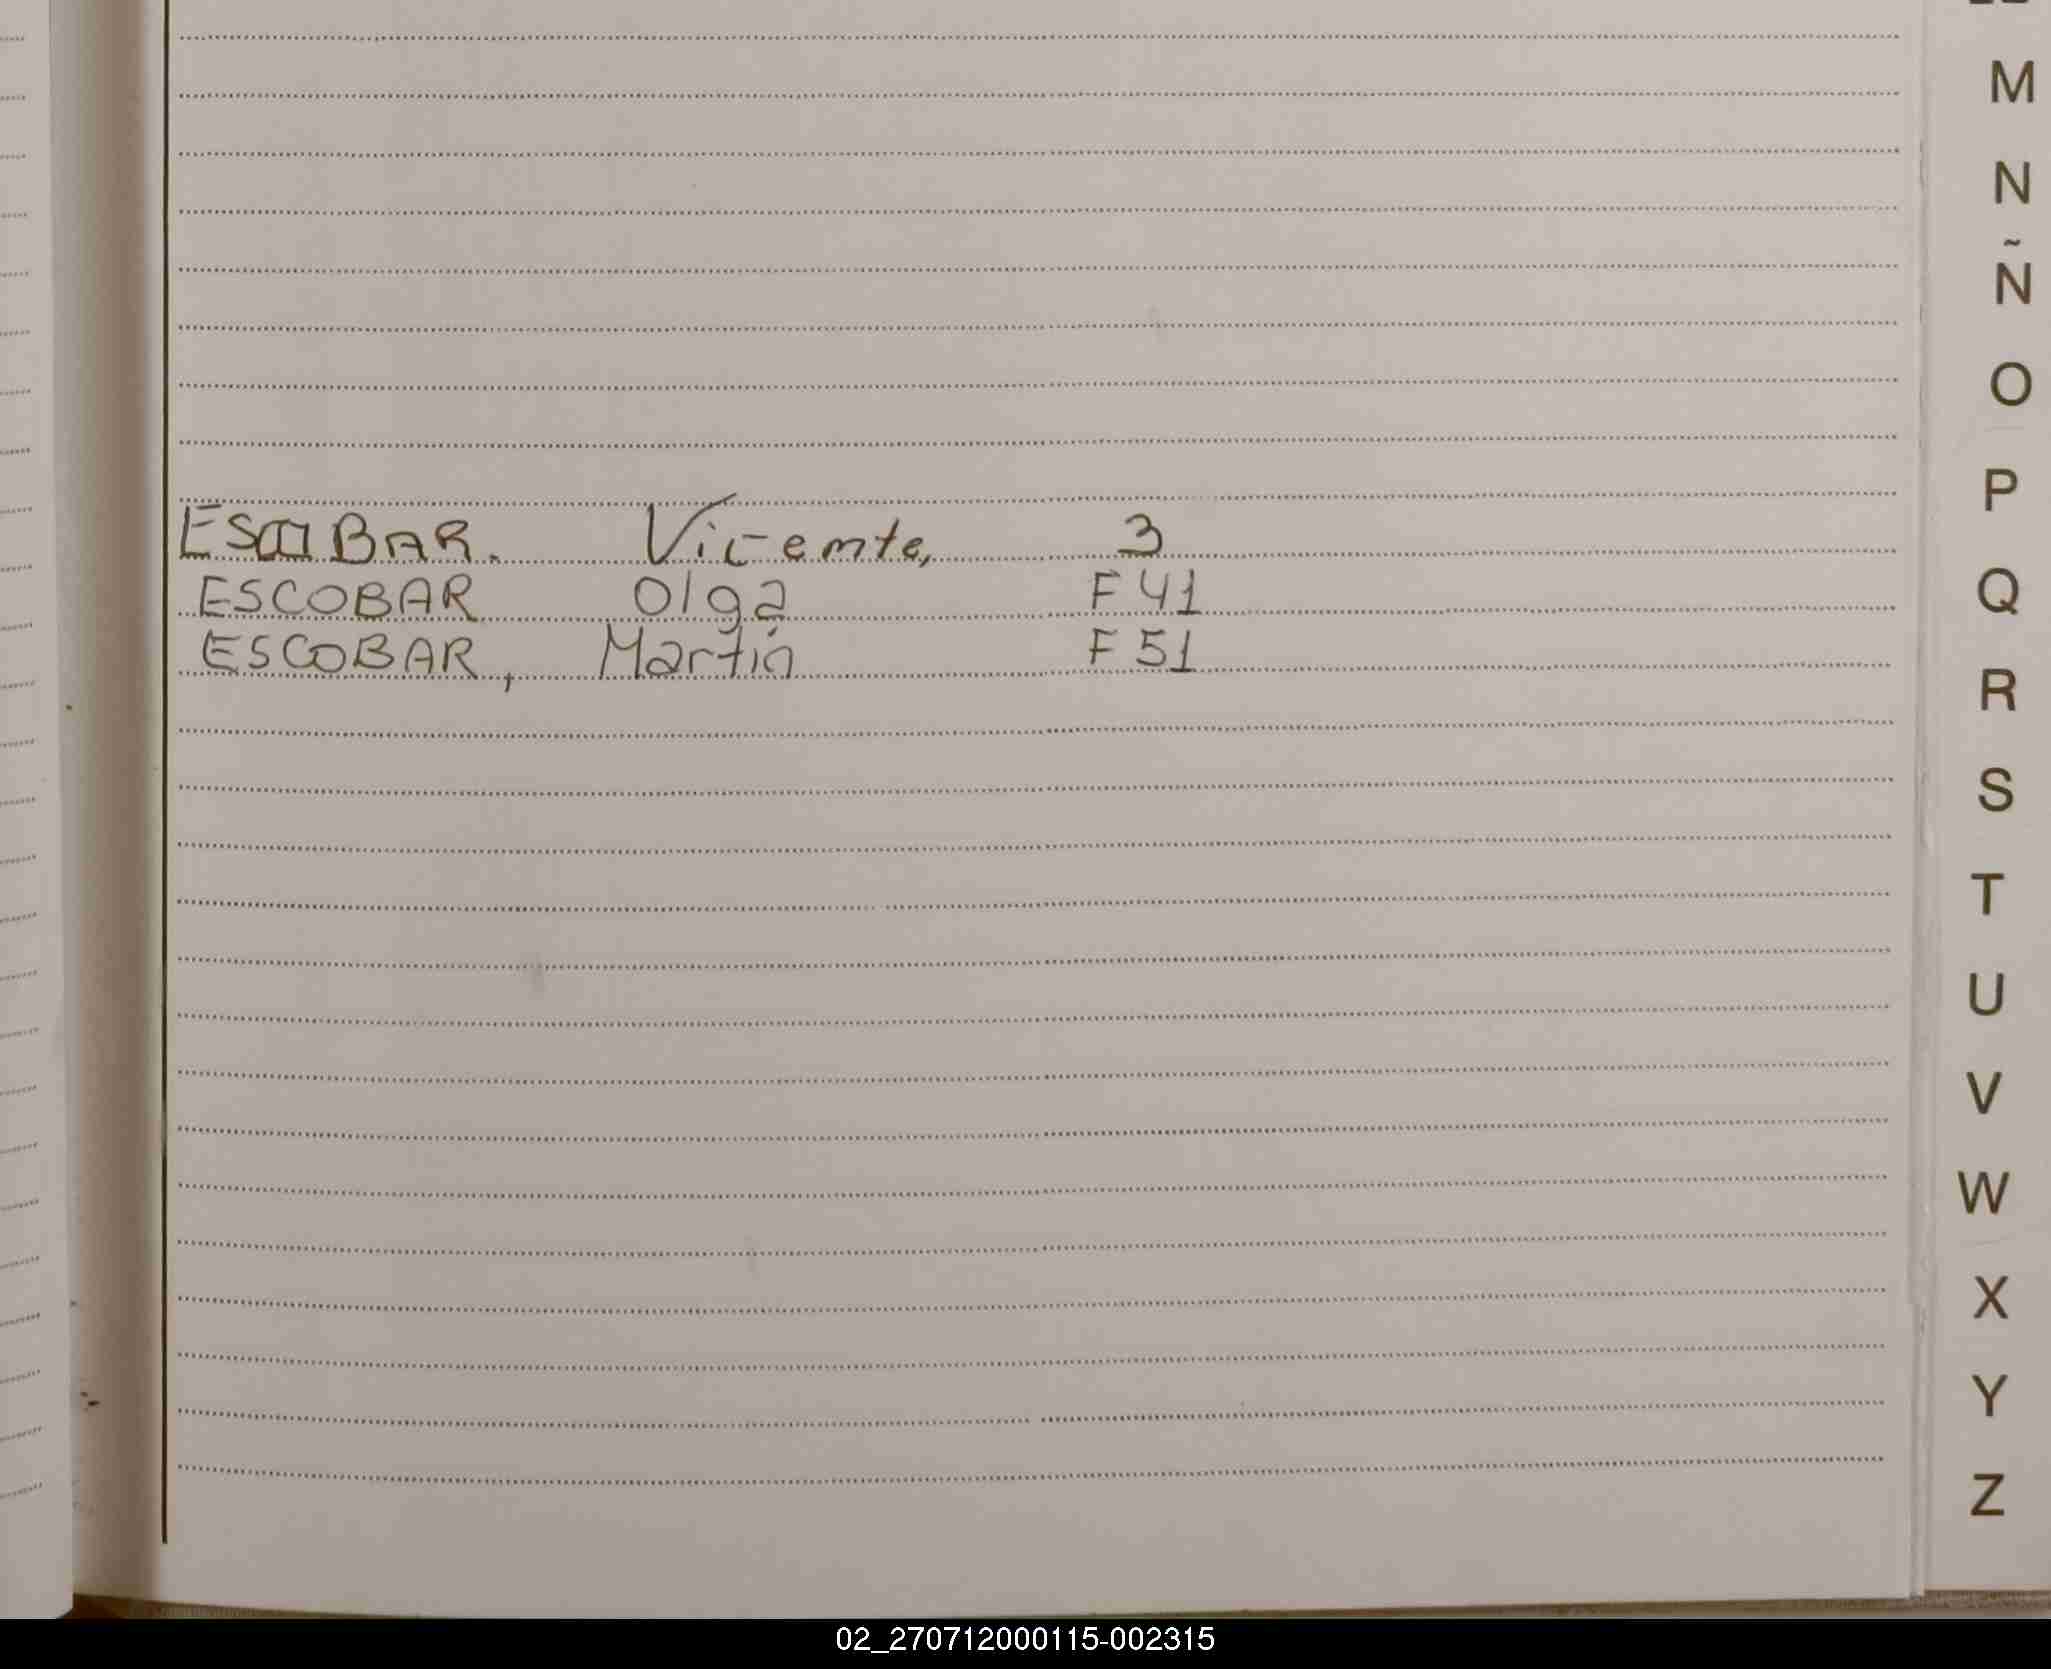 ESCOBAR. Vicente, 3
ESCOBAR Olga F 41
ESCOBAR, Martín F 51
M
N
Ñ
O
P
Q
R
S
T
U
V
W
X
Y
Z
02_270712000115-002315